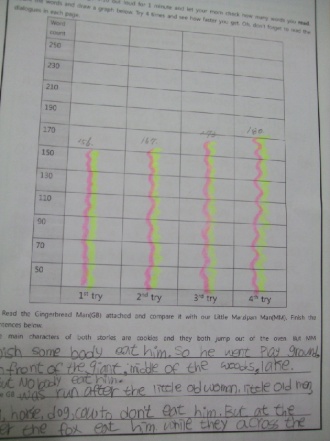 the words and draw a graph below. Try 4 times and see how fast you get. Oh, don't forget to read the
dialogues in each page.
Word
count
250
230
210
190
170
150
130
110
90
70
50
1st try
2nd try
3rd try
4th try
Read the Gingerbread Man(GB) attached and compare it with our Little Marzipan Man(MM). Finish the
sentences below.
main characters of both stories are cookies and they both jump out of the oven. But MM
some body eat him. So he went Pay ground,
front of the giant, middle of the woods, lake.
But No body eat him.
was run after the little old woman, little old man,
horse, dog, don't eat him. But at the
the fox eat him while they across the